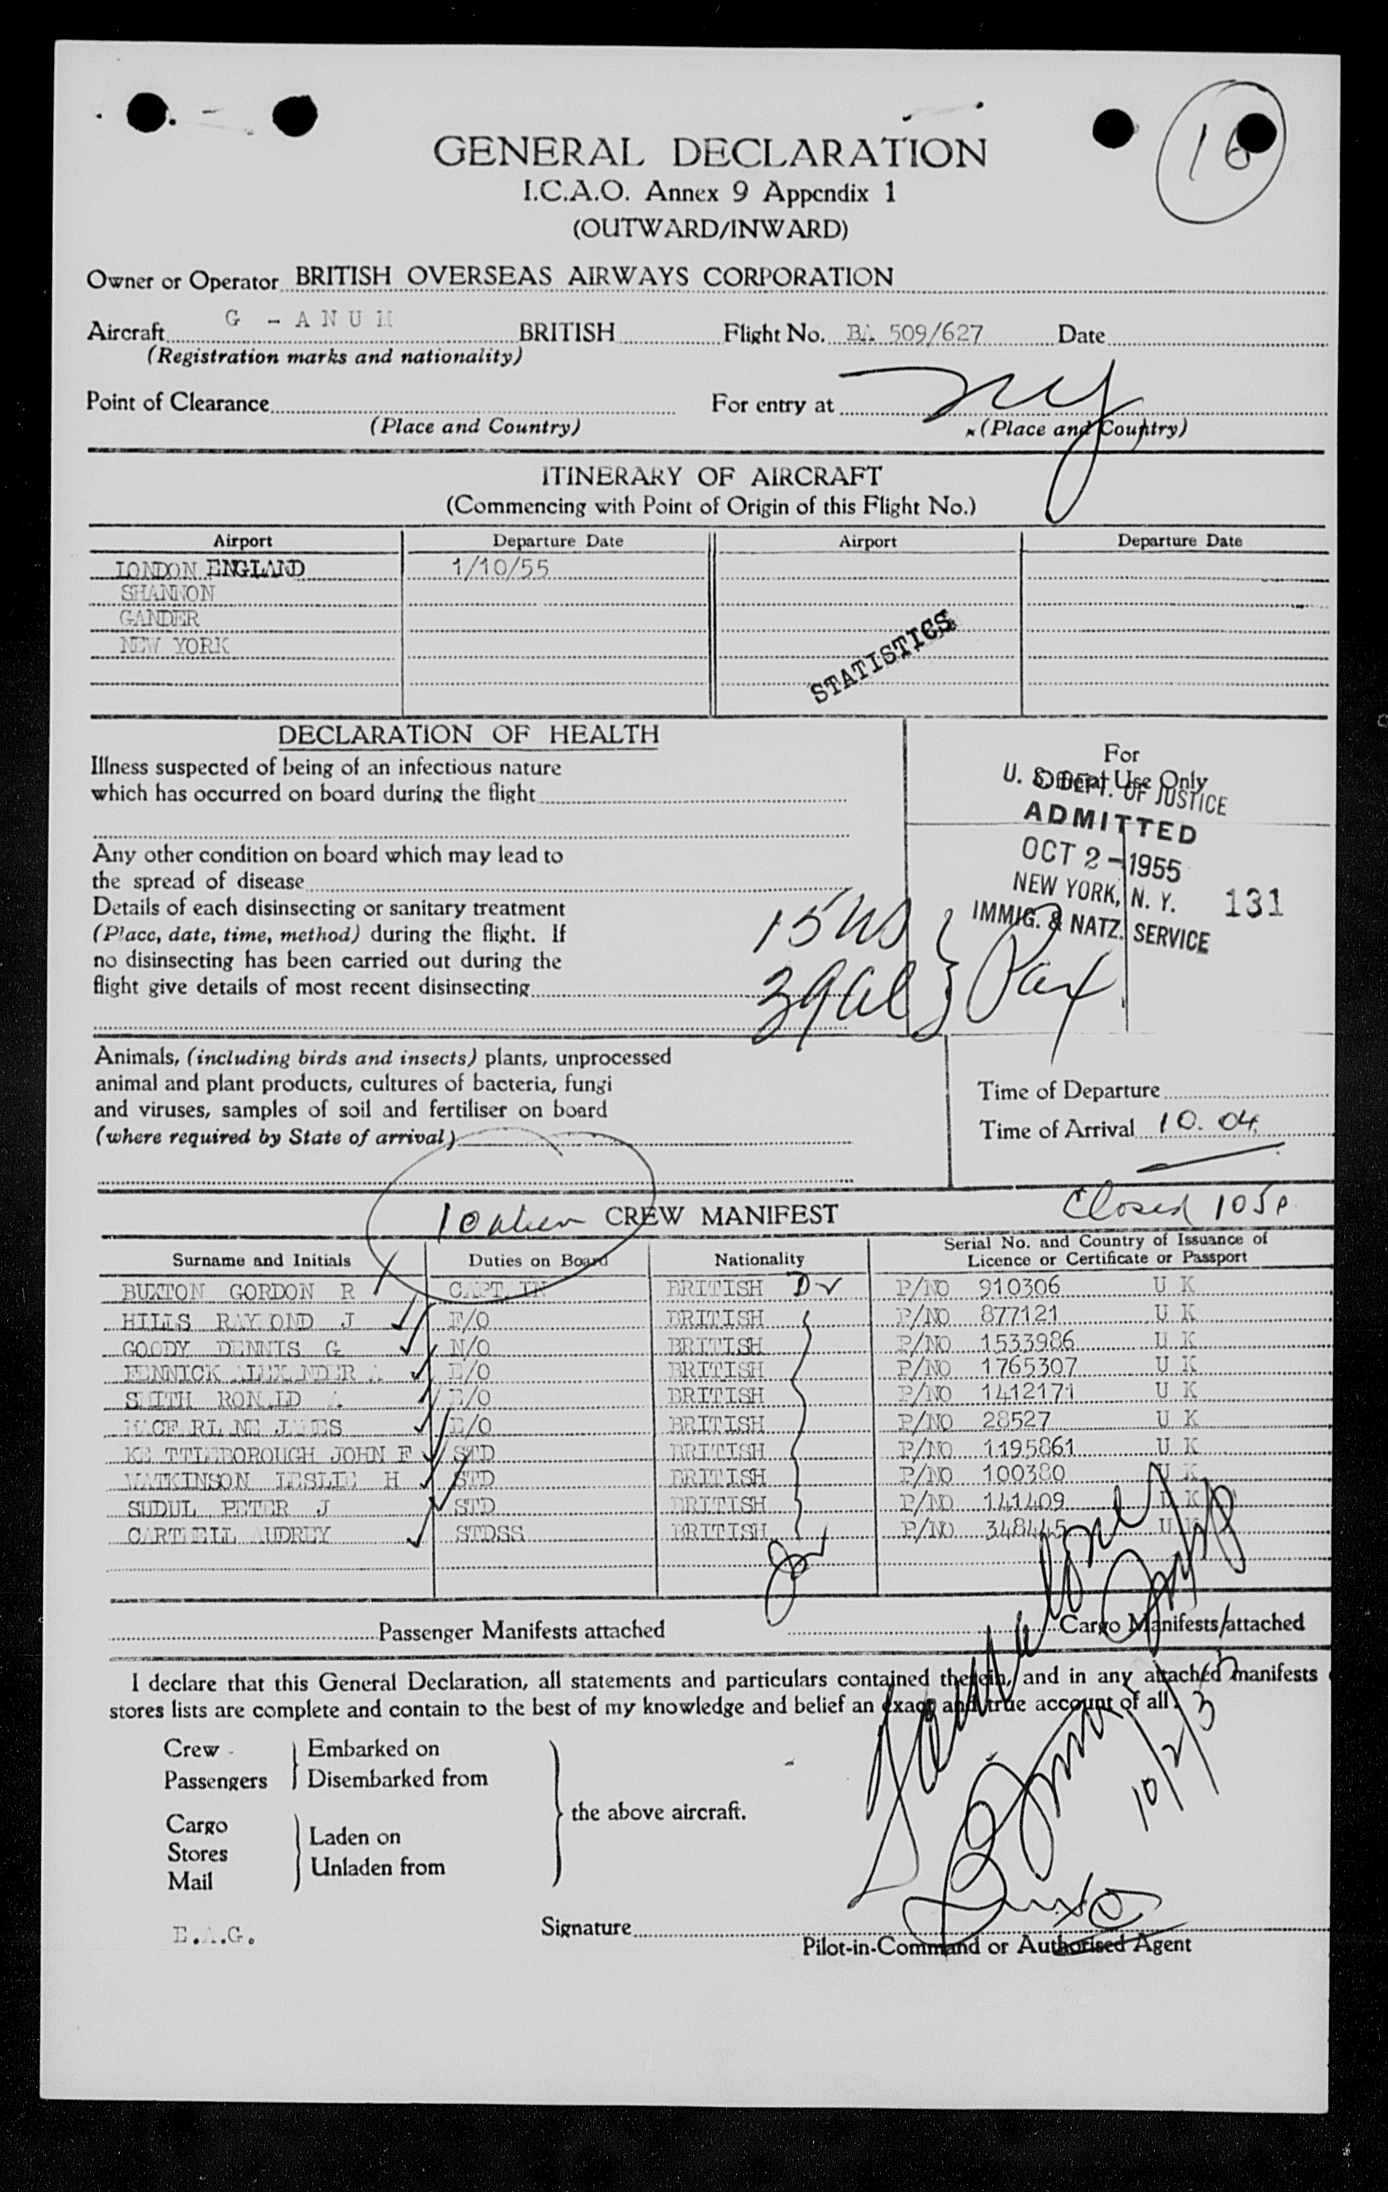 16
GENERAL DECLARATION
I.C.A.O. Annex 9 Appendix 1
(OUTWARD/INWARD)
Owner or Operator BRITISH OVERSEAS AIRWAYS CORPORATION
Aircraft G - A N U M BRITISH Flight No. BA 509/627 Date
(Registration marks and nationality)
Point of Clearance For entry at NY
(Place and Country) (Place and Country)
ITINERARY OF AIRCRAFT
(Commencing with Point of Origin of this Flight No.)
Airport Departure Date Airport Departure Date
LONDON ENGLAND 1/10/55
SHANNON
GANDER
NEW YORK
STATISTICS
DECLARATION OF HEALTH
For
Official Use Only
Illness suspected of being of an infectious nature
which has occurred on board during the flight
U. S. DEPT. OF JUSTICE
ADMITTED
OCT 2 - 1955
NEW YORK, N. Y. 131
IMMIG. & NATZ. SERVICE
Any other condition on board which may lead to
the spread of disease
Details of each disinsecting or sanitary treatment
(Place, date, time, method) during the flight. If
no disinsecting has been carried out during the
flight give details of most recent disinsecting
15 US
39 Al } Pax
Animals, (including birds and insects) plants, unprocessed
animal and plant products, cultures of bacteria, fungi
and viruses, samples of soil and fertiliser on board
(where required by State of arrival)
Time of Departure
Time of Arrival 10.04
10 alien CREW MANIFEST Closed 105P
Surname and Initials Duties on Board Nationality Serial No. and Country of Issuance of Licence or Certificate or Passport
BUXTON GORDON R CAPTAIN BRITISH D P/NO 910306 U K
HILLS RAYMOND J F/O BRITISH P/NO 877121 U K
GOODY DENNIS G N/O BRITISH P/NO 1533986 U K
FENNICK ALEXANDER A E/O BRITISH P/NO 1765307 U K
SMITH RONALD A E/O BRITISH P/NO 1412171 U K
MACFARLANE JAMES E/O BRITISH P/NO 28527 U K
KETTLEBOROUGH JOHN F STD BRITISH P/NO 1195861 U K
WATKINSON LESLIE H STD BRITISH P/NO 100380 U K
SUDUL PETER J STD BRITISH P/NO 141409 U K
CARTWELL AUDREY STDSS BRITISH P/NO 348445 U K
Passenger Manifests attached Cargo Manifests attached
I declare that this General Declaration, all statements and particulars contained therein, and in any attached manifests
stores lists are complete and contain to the best of my knowledge and belief an exact and true account of all.
Crew Embarked on
Passengers Disembarked from
the above aircraft.
Cargo Laden on
Stores Unladen from
Mail
10/2/3
E.A.G.
Signature Buxton
Pilot-in-Command or Authorised Agent